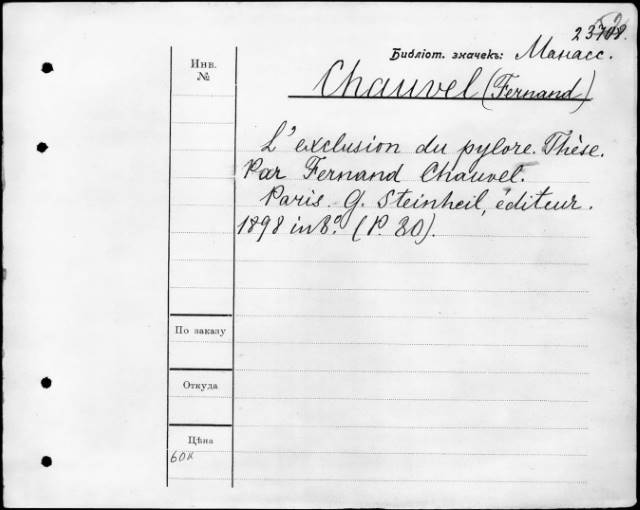 Библіот. значекъ: Манасс.
Инв.
№
Chauvel (Fernand)
L'exclusion du pylore. Thèse.
Par Fernand Chauvel.
Paris. G. Steinheil, éditeur.
1898 in 8º. (P. 80).
По заказу
Откуда
Цѣна
60к